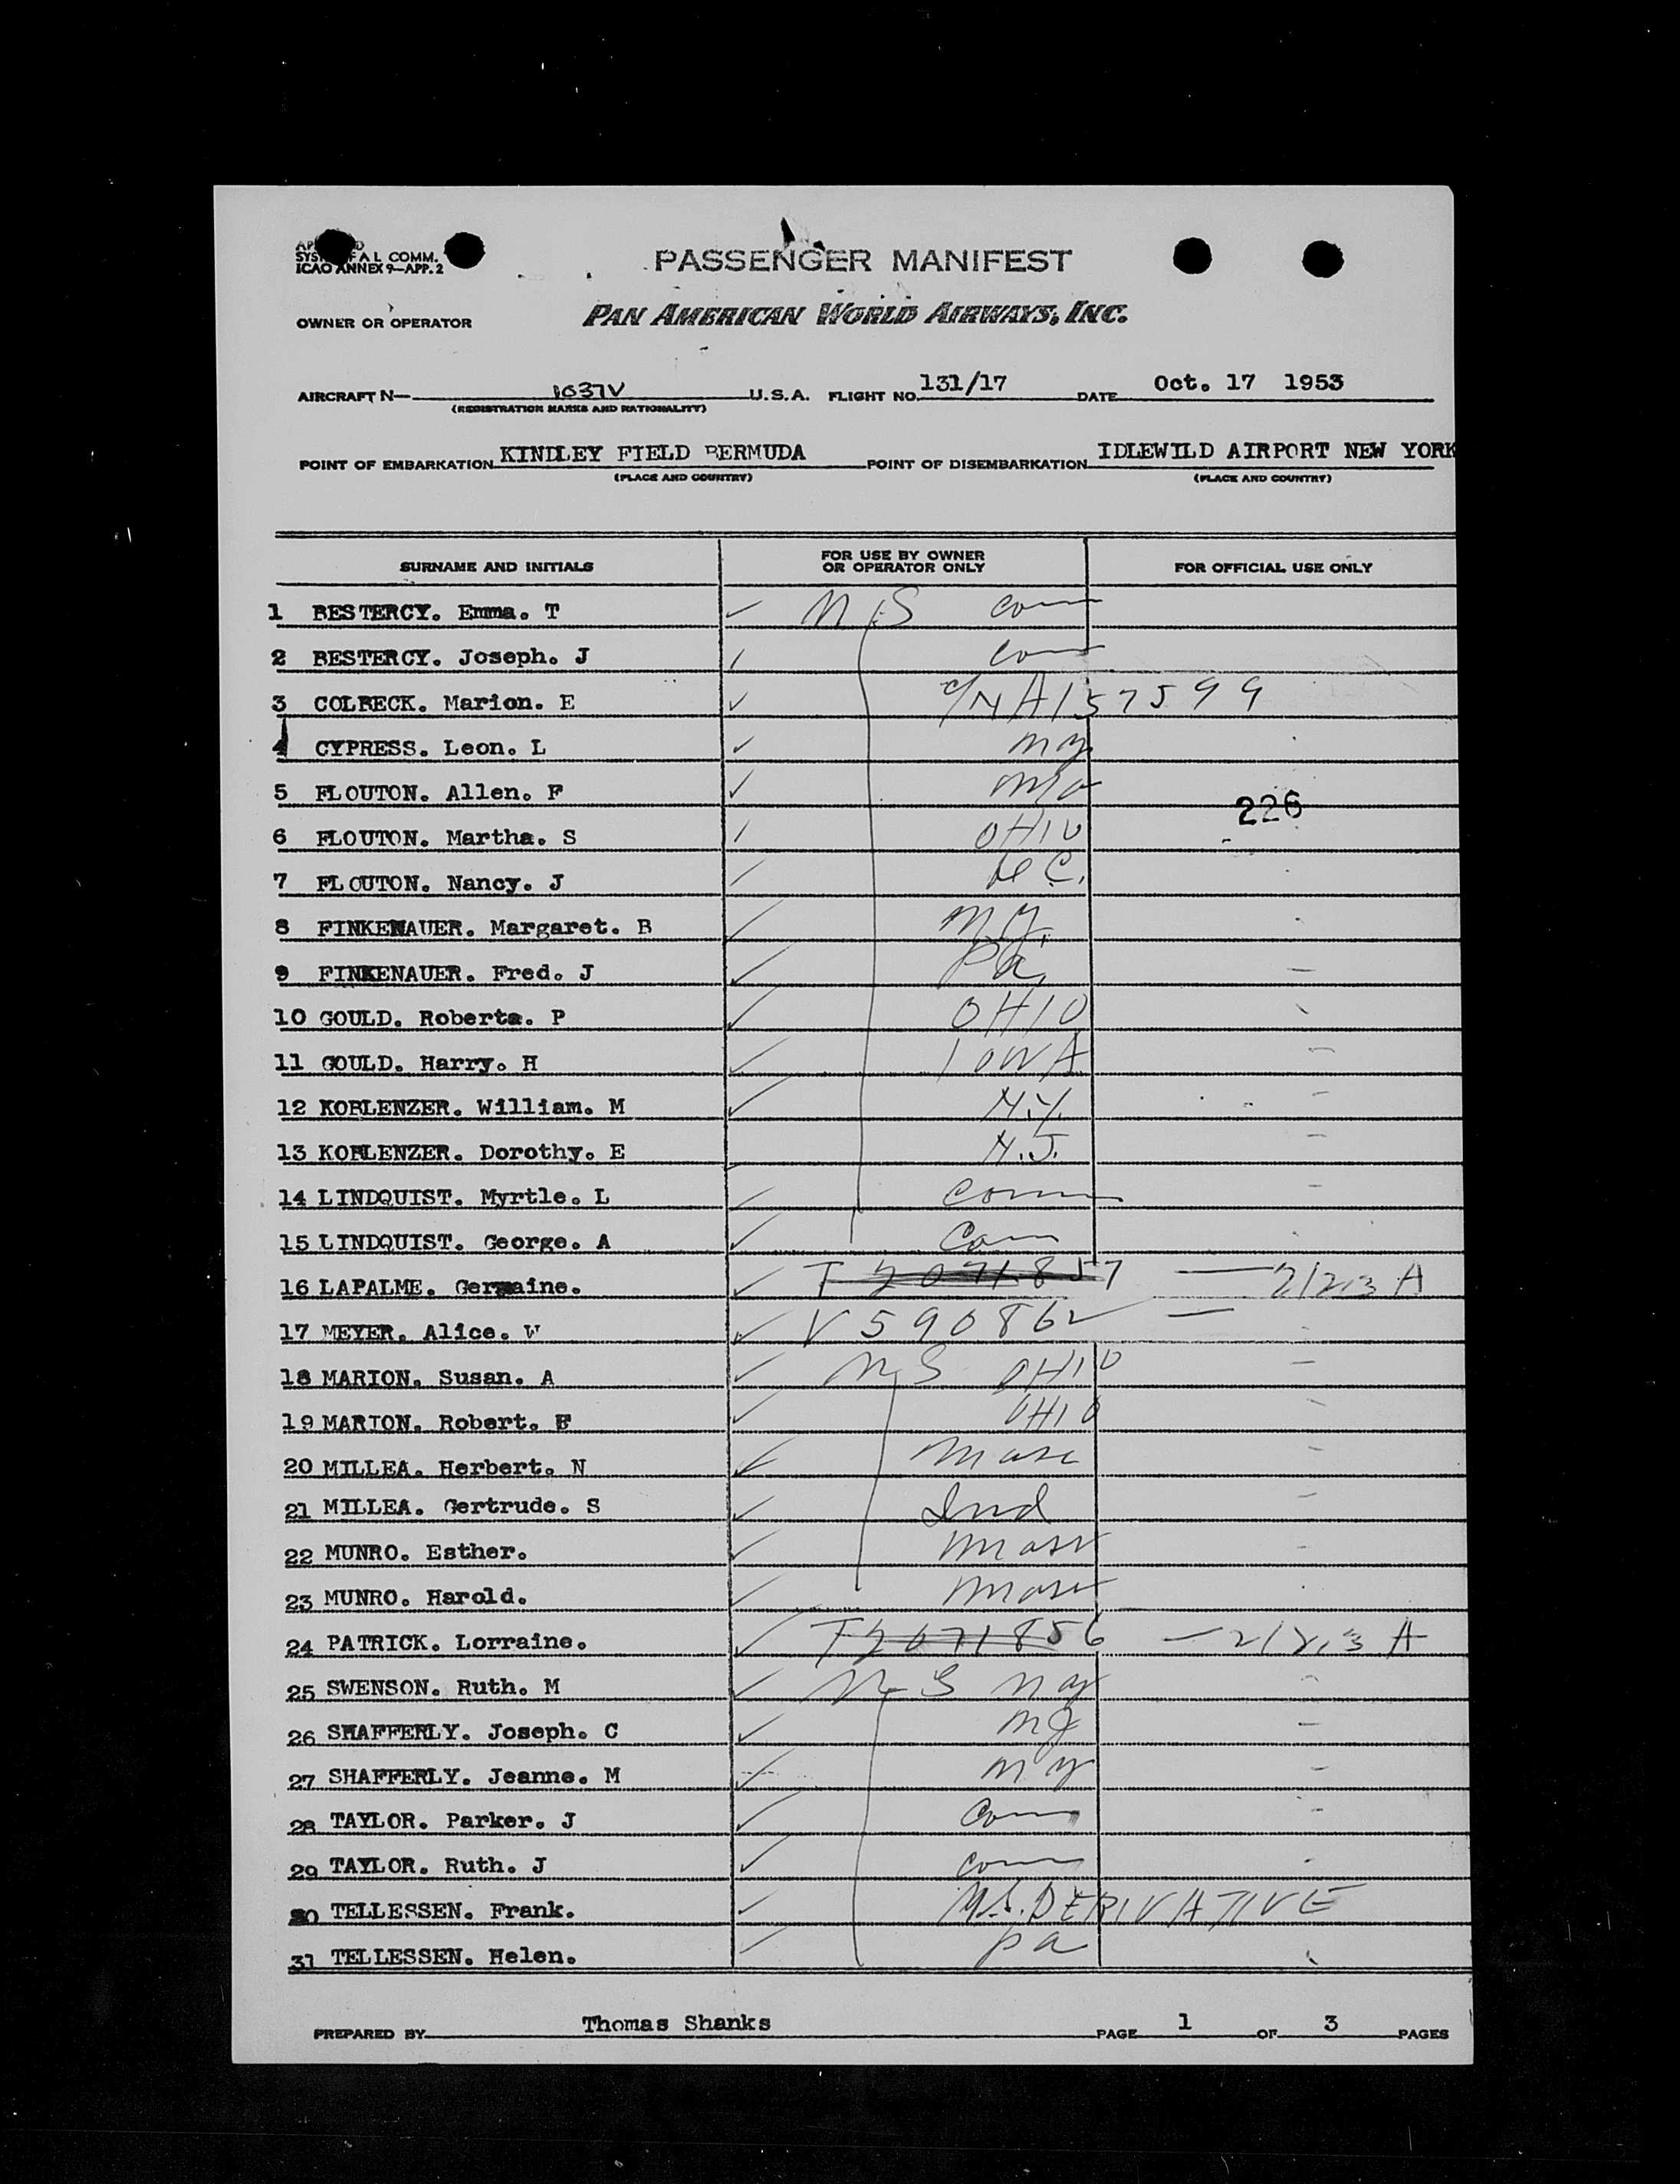 SYS F A L COMM.
ICAO ANNEX 9—APP. 2
PASSENGER MANIFEST
OWNER OR OPERATOR PAN AMERICAN WORLD AIRWAYS, INC.
AIRCRAFT N— 1037V U.S.A. FLIGHT NO. 131/17 DATE Oct. 17 1953
(REGISTRATION MARKS AND NATIONALITY)
POINT OF EMBARKATION KINDLEY FIELD BERMUDA POINT OF DISEMBARKATION IDLEWILD AIRPORT NEW YORK
(PLACE AND COUNTRY) (PLACE AND COUNTRY)
SURNAME AND INITIALS FOR USE BY OWNER OR OPERATOR ONLY FOR OFFICIAL USE ONLY
1 BESTERCY. Emma. T Conn
2 BESTERCY. Joseph. J Conn
3 COLBECK. Marion. E C/NA157599
4 CYPRESS. Leon. L ny
5 FLOUTON. Allen. F Mo
226
6 FLOUTON. Martha. S OHIO
7 FLOUTON. Nancy. J C.
8 FINKENAUER. Margaret. B n y.
9 FINKENAUER. Fred. J Pa,
10 GOULD. Roberta. P OHIO
11 GOULD. Harry. H IOWA
12 KOBLENZER. William. M N.Y.
13 KOBLENZER. Dorothy. E N.J.
14 LINDQUIST. Myrtle. L Conn
15 LINDQUIST. George. A Conn
16 LAPALME. Germaine. T 2071857 — 21213 A
17 MEYER. Alice. W V 590862 —
18 MARION. Susan. A OHIO
19 MARION. Robert. F OHIO
20 MILLEA. Herbert. N Mass
21 MILLEA. Gertrude. S Ind
22 MUNRO. Esther. Mass
23 MUNRO. Harold. Mass
24 PATRICK. Lorraine. T2071856 — 21213 A
25 SWENSON. Ruth. M ny
26 SHAFFERLY. Joseph. C NJ
27 SHAFFERLY. Jeanne. M ny
28 TAYLOR. Parker. J Conn
29 TAYLOR. Ruth. J Conn
30 TELLESSEN. Frank. U.S. DERIVATIVE
31 TELLESSEN. Helen. pa
PREPARED BY Thomas Shanks PAGE 1 OF 3 PAGES